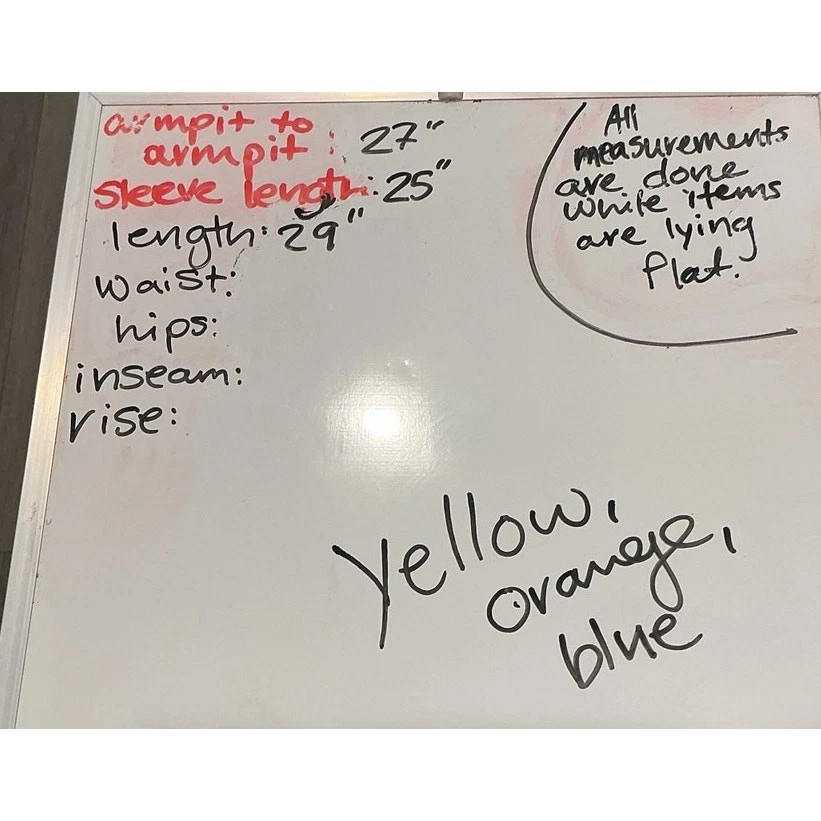 armpit to
armpit: 27"
sleeve length: 25"
length: 29"
waist:
hips:
inseam:
rise:
All
measurements
are done
while items
are lying
flat.
Yellow,
orange,
blue